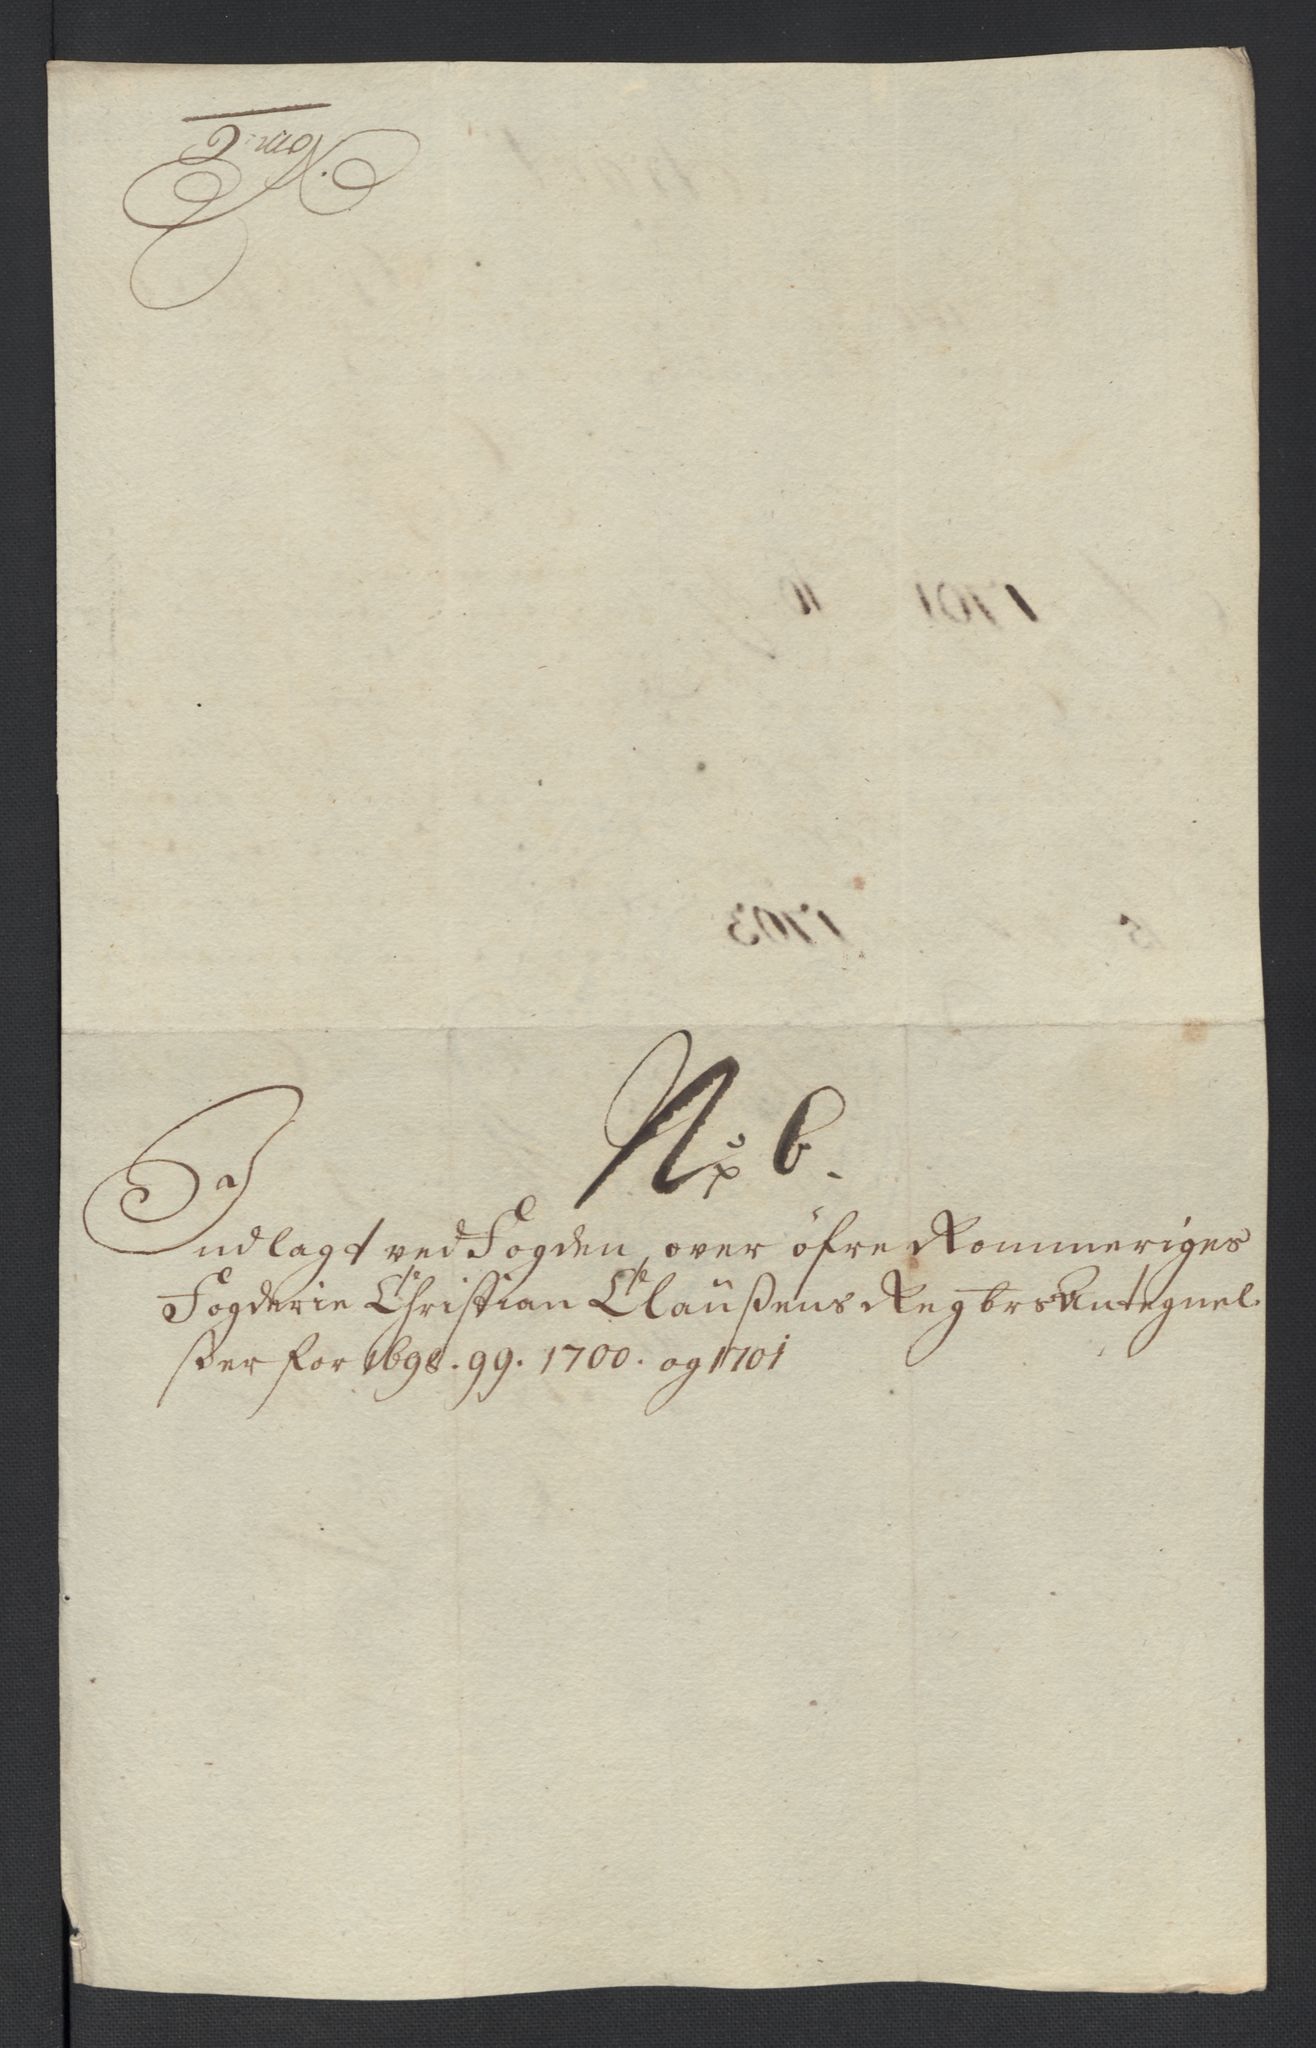 No 6.
Indlagt ved Fogden over öfre Rommeriges
Fogderie Christian Clausens Regbrs Antegnel
ser for 1698. 99. 1700. og 1701